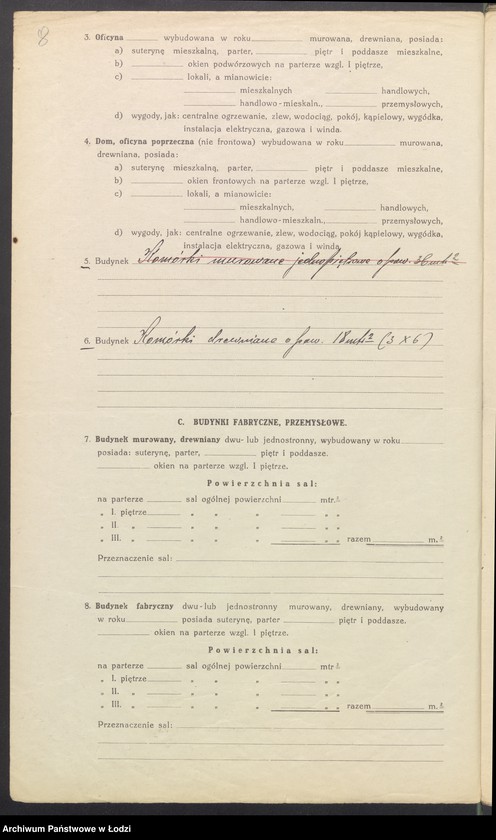 8
3. Oficyna ______ wybudowana w roku ______ murowana, drewniana, posiada:
a) suterynę mieszkalną, parter, ______ piętr i poddasze mieszkalne,
b) ______ okien podwórzowych na parterze wzgl. I piętrze,
c) ______ lokali, a mianowicie:
______ mieszkalnych ______ handlowych,
______ handlowo-mieskaln., ______ przemysłowych,
d) wygody, jak: centralne ogrzewanie, zlew, wodociąg, pokój, kąpielowy, wygódka,
instalacja elektryczna, gazowa i winda.
4. Dom, oficyna poprzeczna (nie frontowa) wybudowana w roku ______ murowana,
drewniana, posiada:
a) suterynę mieszkalną, parter, ______ piętr i poddasze mieszkalne,
b) ______ okien frontowych na parterze wzgl. I piętrze,
c) ______ lokali, a mianowicie:
______ mieszkalnych, ______ handlowych,
______ handlowo-mieszkaln., ______ przemysłowych,
d) wygody, jak: centralne ogrzewanie, zlew, wodociąg, pokój kąpielowy, wygódka,
instalacja elektryczna, gazowa i winda.
5. Budynek Komórki murowane jednopiętrowe o pow. mtr²
6. Budynek Komórki drewniane o pow. 18 mtr² (3 x 6)
C. BUDYNKI FABRYCZNE, PRZEMYSŁOWE.
7. Budynek murowany, drewniany dwu- lub jednostronny, wybudowany w roku ______
posiada: suterynę, parter, ______ piętr i poddasze.
______ okien na parterze wzgl. I piętrze.
Powierzchnia sal:
na parterze ______ sal ogólnej powierzchni ______ mtr.²
„ I. piętrze ______ „ „ „ ______ „ „
„ II. „ ______ „ „ „ ______ „ „
„ III. „ ______ „ „ „ ______ „ „ razem ______ m.²
Przeznaczenie sal: ______
8. Budynek fabryczny dwu-lub jednostronny murowany, drewniany, wybudowany
w roku ______ posiada suterynę, parter ______ piętr i poddasze.
______ okien na parterze wzgl. I piętrze.
Powierzchnia sal:
na parterze ______ sal ogólnej powierzchni ______ mtr.²
„ I. piętrze ______ „ „ „ ______ „ „
„ II. „ ______ „ „ „ ______ „ „
„ III. „ ______ „ „ „ ______ „ „ razem ______ m.²
Przeznaczenie sal: ______
Archiwum Państwowe w Łodzi